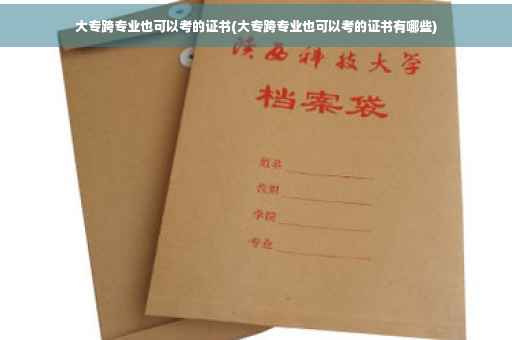 大专跨专业也可以考的证书(大专跨专业也可以考的证书有哪些)
陕西科技大学
档案袋
姓名
学院
专业